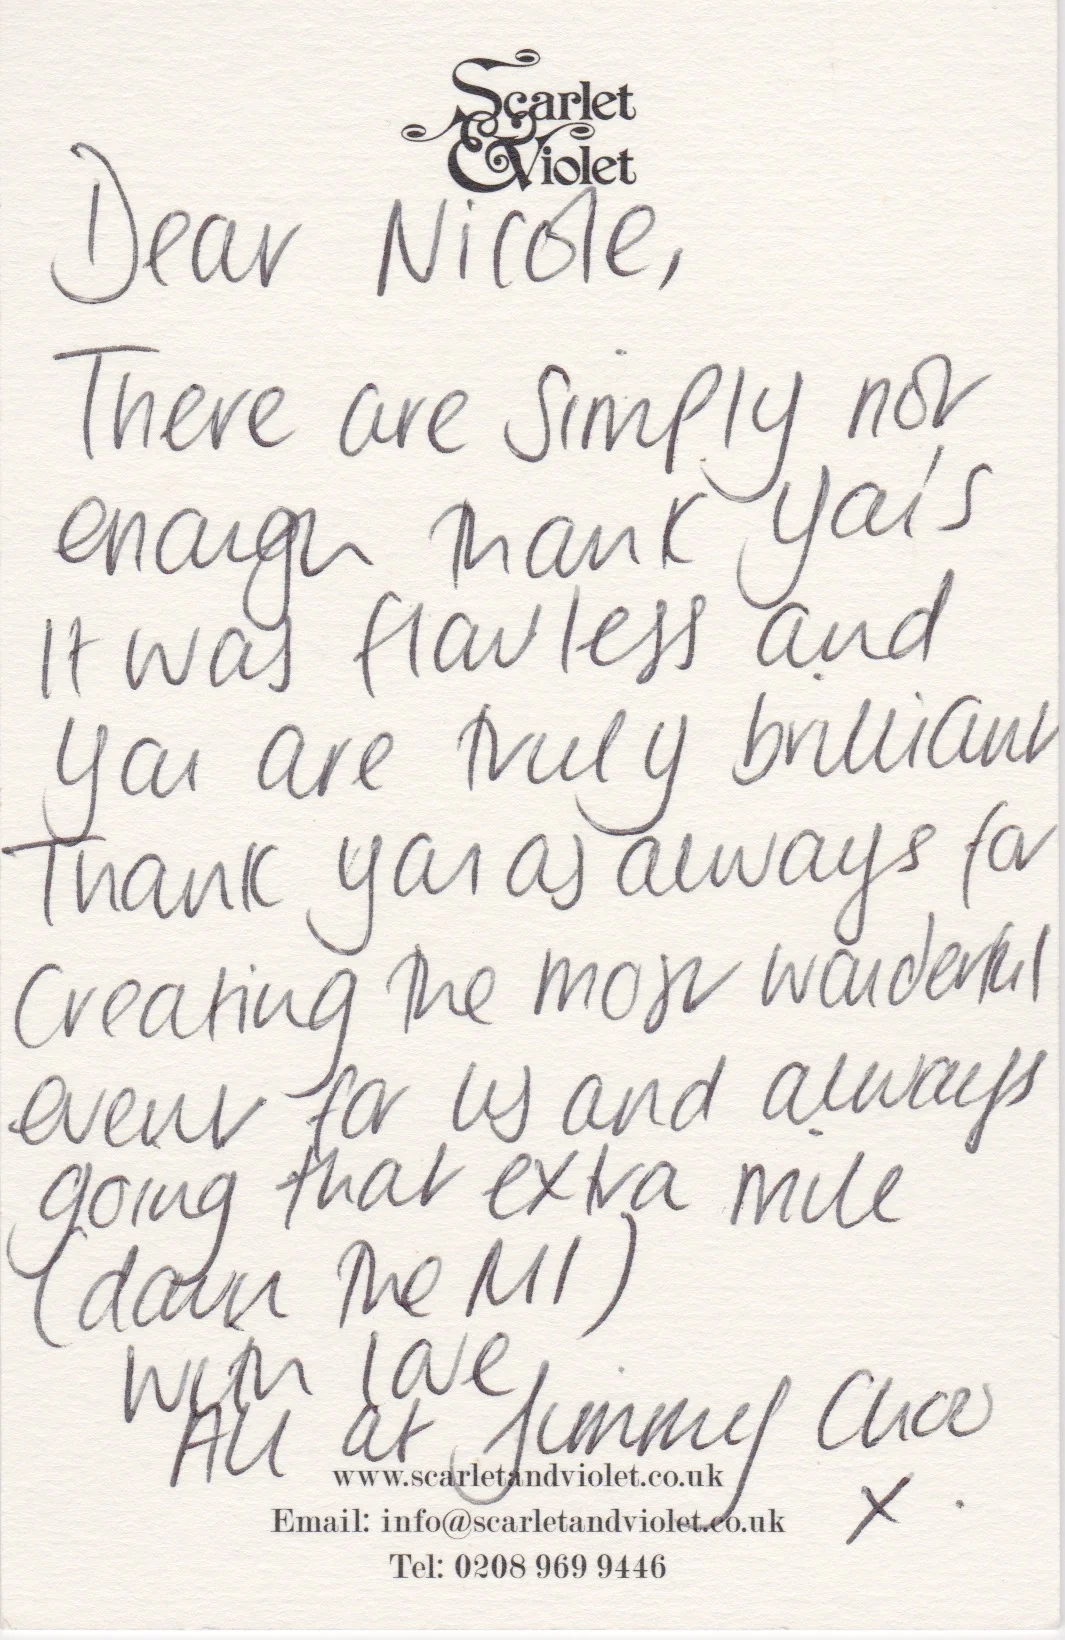 Scarlet
& Violet
Dear Nicole,
There are simply not
enough thank you's
It was flawless and
you are truly brilliant
Thank you as always for
Creating the most wonderful
event for us and always
going that extra mile
(down the M1)
With love
All at Jimmy Choo
x
www.scarletandviolet.co.uk
Email: info@scarletandviolet.co.uk
Tel: 0208 969 9446